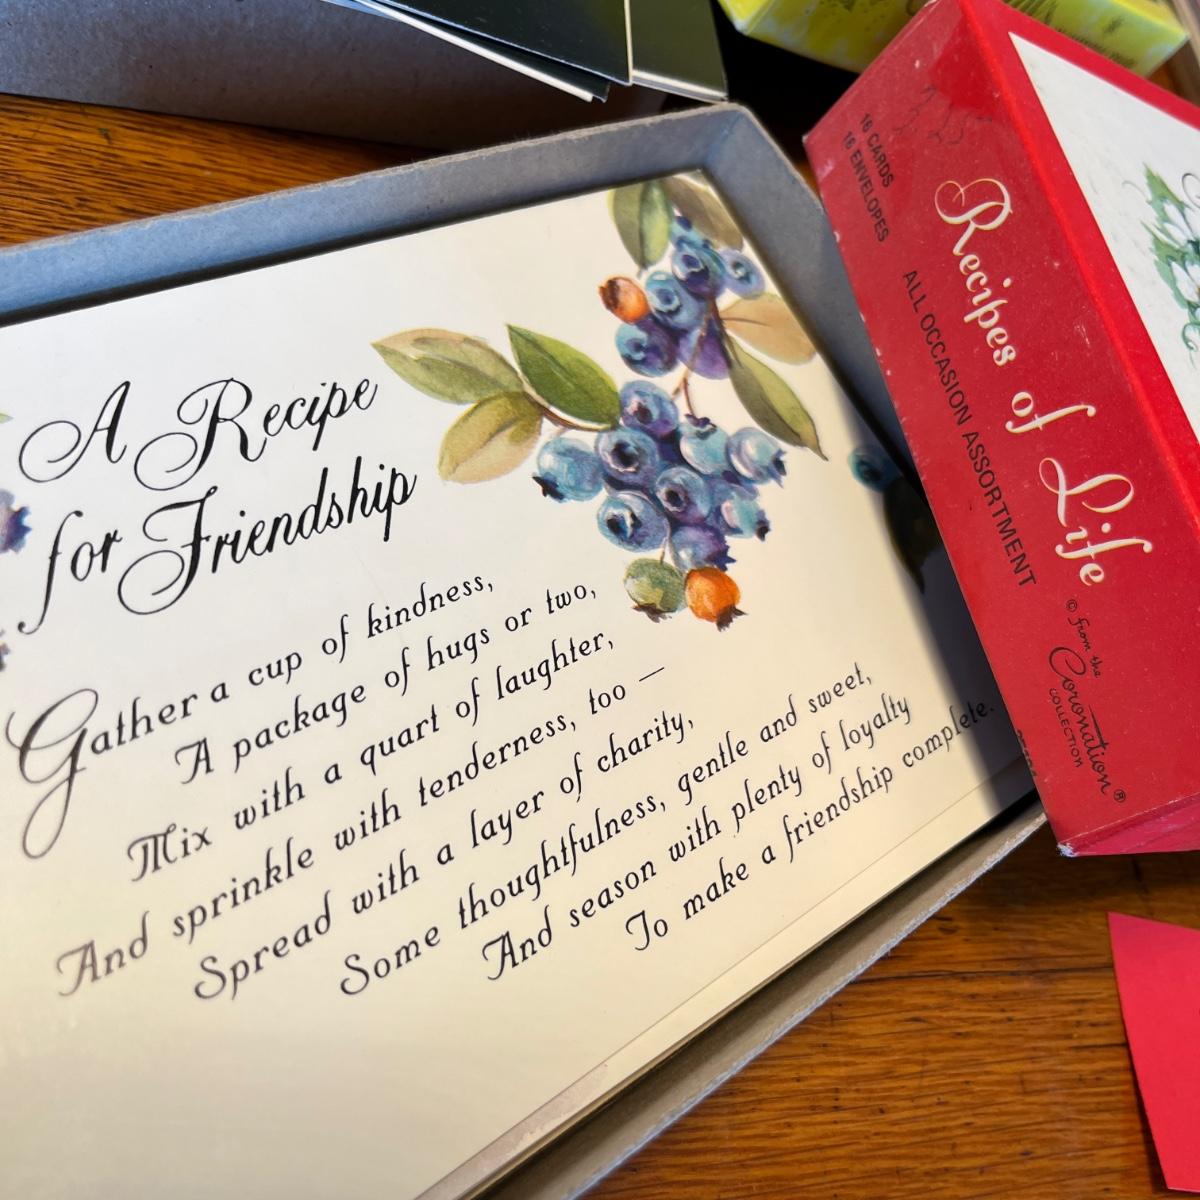 A Recipe
for Friendship
Gather a cup of kindness,
A package of hugs or two,
Mix with a quart of laughter,
And sprinkle with tenderness, too —
Spread with a layer of charity,
Some thoughtfulness, gentle and sweet,
And season with plenty of loyalty
To make a friendship complete.
16 CARDS
16 ENVELOPES
Recipes of Life
ALL OCCASION ASSORTMENT
© from the
Coronation®
COLLECTION